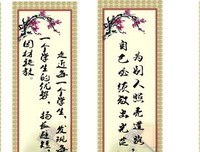 走近每一个学生，发现每
一个学生的优势，扬长避短，
因材施教。
为别人照亮道路，
自己必须放出光芒